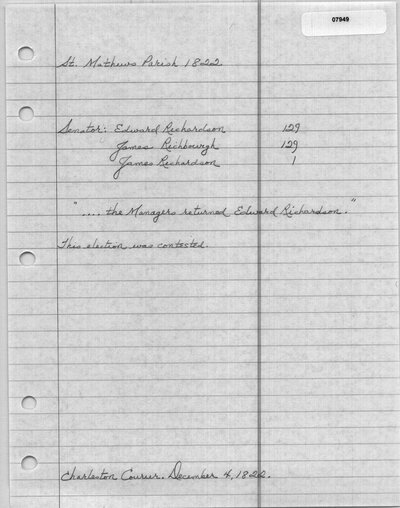 07949
St. Mathews Parish 1822
Senator: Edward Richardson 129
James Richbourgh 129
James Richardson 1
".... the Managers returned Edward Richardson."
This election was contested.
Charleston Courier. December 4, 1822.